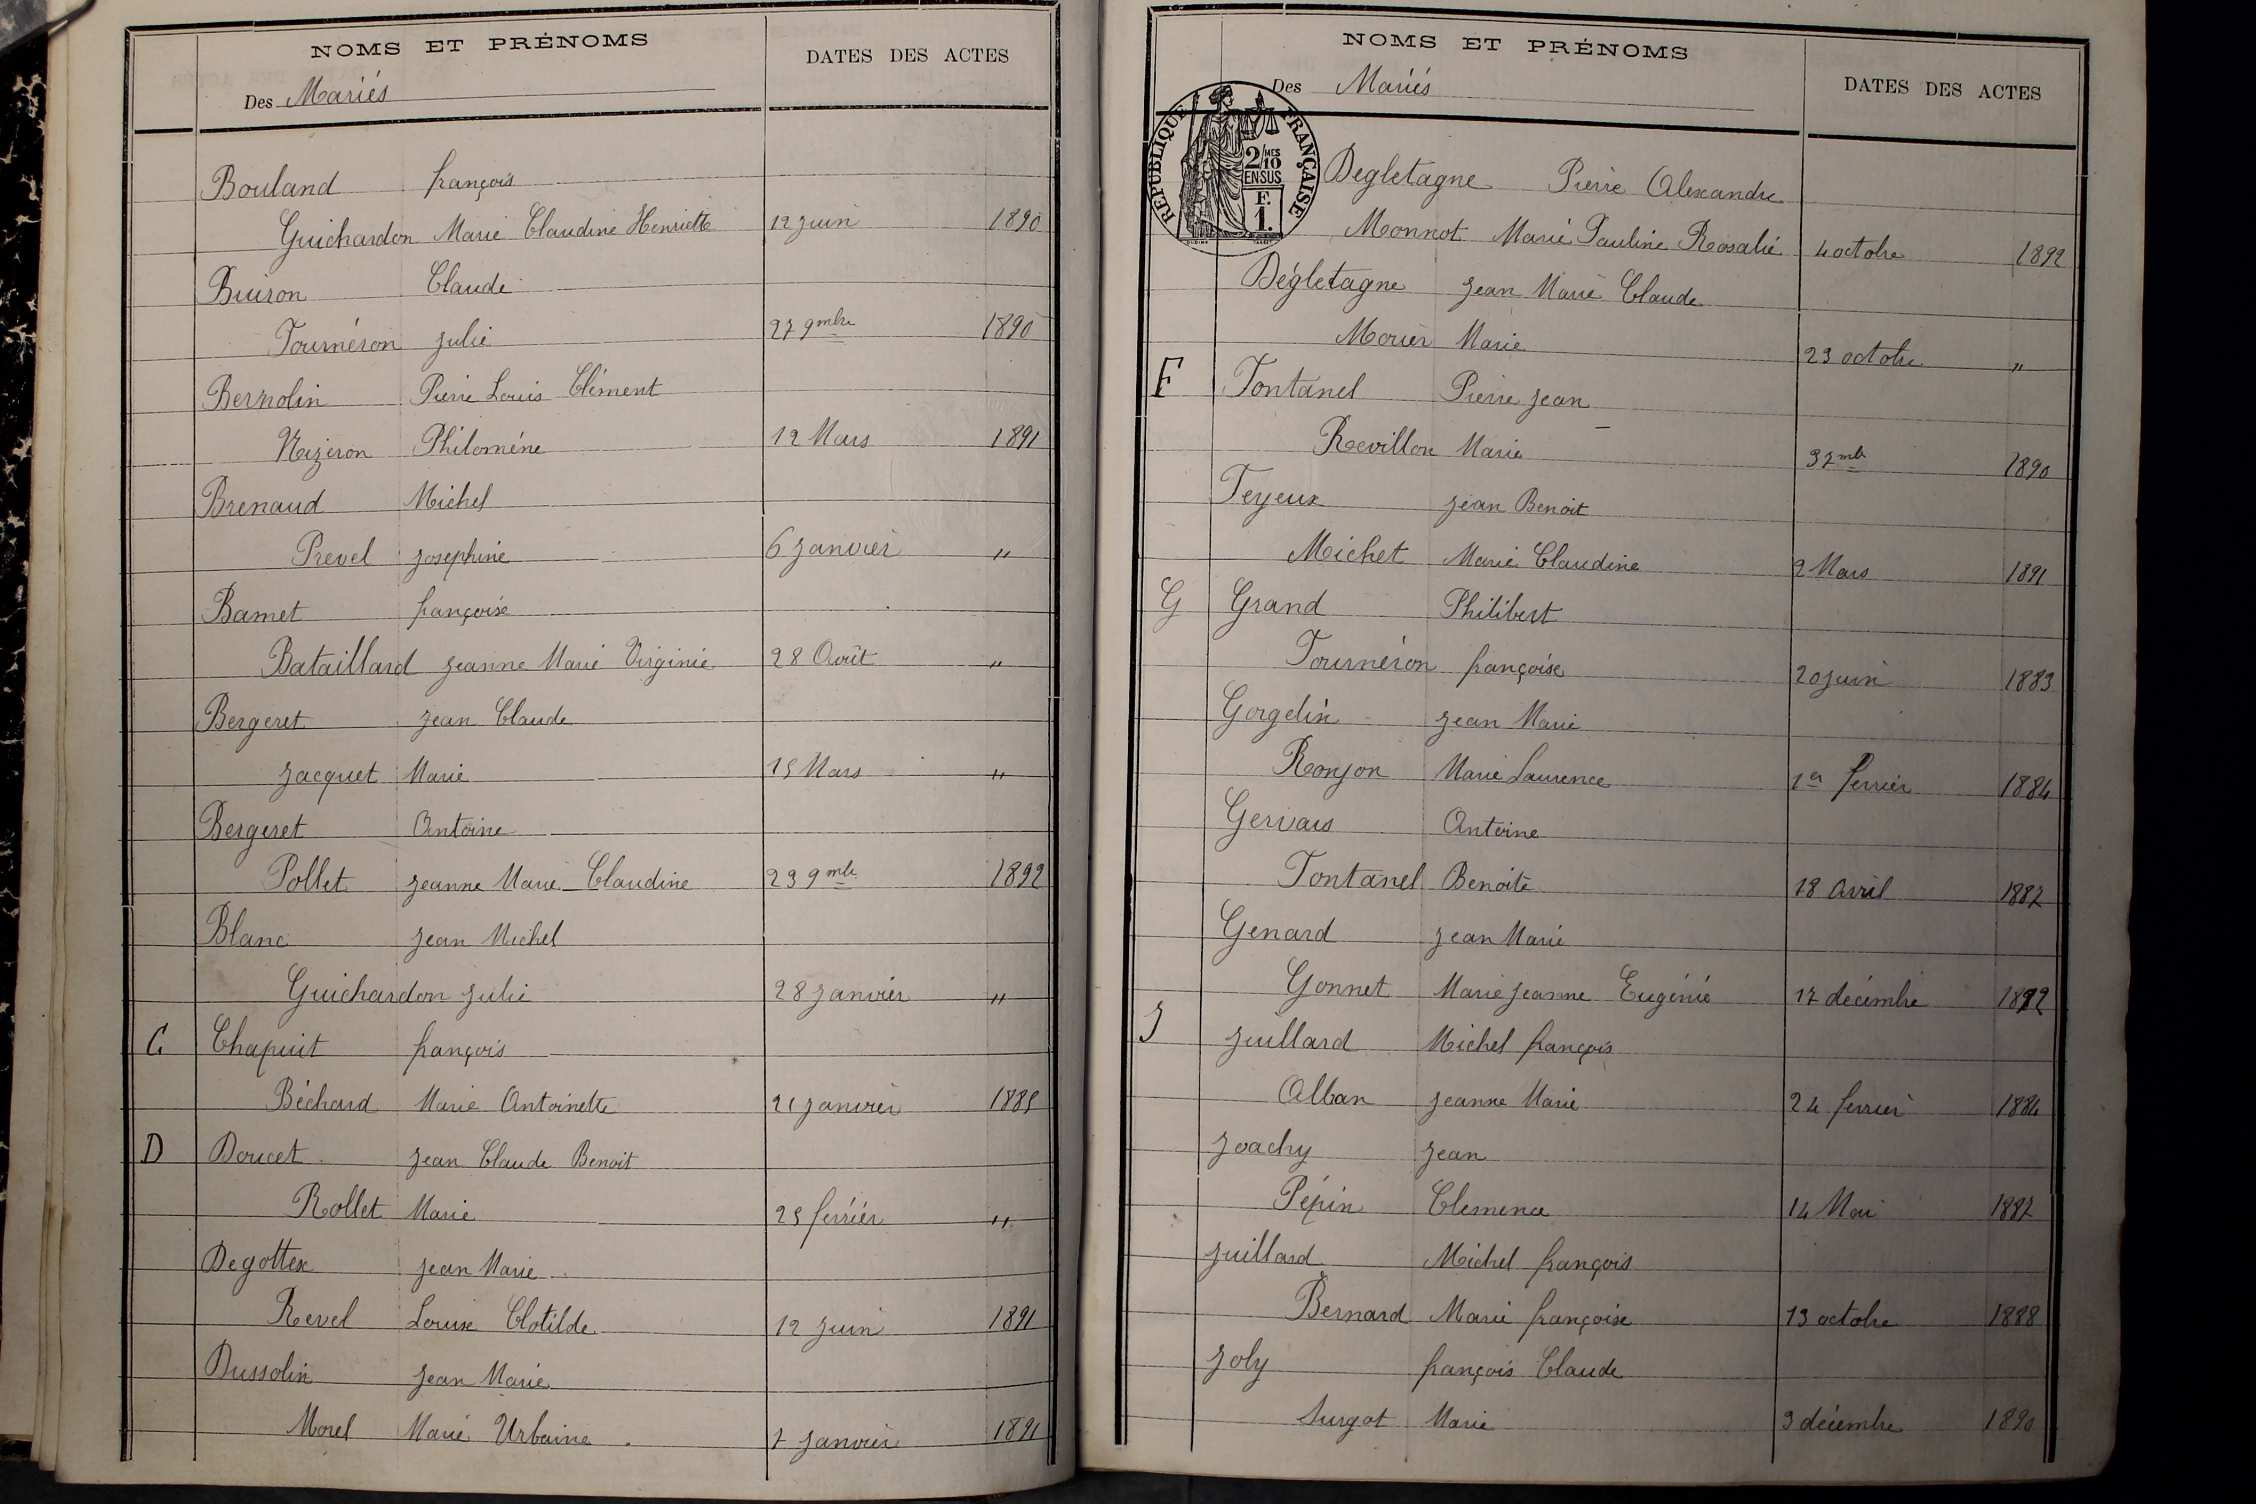 NOMS ET PRÉNOMS DATES DES ACTES
Des Mariés
Bouland françois
Guichardon Marie Claudine Henriette 12 juin 1890
Buiron Claude
Tournéron Julie 27 9mbre 1890
Bernolin Pierre Louis Clément
Nizeron Philoméne 12 Mars 1891
Brenaud Michel
Prevel Josephine 6 Janvier "
Bamet françoise
Bataillard Jeanne Marie Virginie 28 Août "
Bergeret Jean Claude
Jacquet Marie 15 Mars "
Bergeret Antoine
Pollet Jeanne Marie Claudine 23 9mbre 1892
Blanc Jean Michel
Guichardon Julie 28 Janvier "
C Chapuit françois
Béchard Marie Antoinette 21 Janvier 1885
D Doucet Jean Claude Benoit
Rollet Marie 25 ferriér "
Degottex Jean Marie
Revel Louise Clotilde 12 Juin 1891
Dussolin Jean Marie
Morel Marie Urbaine 7 Janvier 1891
NOMS ET PRÉNOMS DATES DES ACTES
Des Mariés
RÉPUBLIQUE FRANÇAISE
2/10 MES
EN SUS
F.
1.
Degletagne Pierre Alexandre
Monnot Marie Pauline Rosalie 4 octobre 1892
Dégletagne Jean Marie Claude
Morier Marie 23 octobre "
F Fontanel Pierre Jean
Revillon Marie 3 7mbre 1890
Feyeux Jean Benoit
Michet Marie Claudine 2 Mars 1891
G Grand Philibert
Tournéron françoise 20 juin 1883
Gorgelin Jean Marie
Ronjon Marie Laurence 1er ferrier 1884
Gervais Antoine
Fontanel Benoite 18 Avril 1887
Genard Jean Marie
Gonnet Marie Jeanne Eugénie 17 décembre 1892
J Juillard Michel françois
Alban Jeanne Marie 24 ferrier 1884
Joachy Jean
Pépin Clemence 14 Mai 1887
Juillard Michel françois
Bernard Marie françoise 13 octobre 1888
Joly françois Claude
Surgot Marie 3 décembre 1890